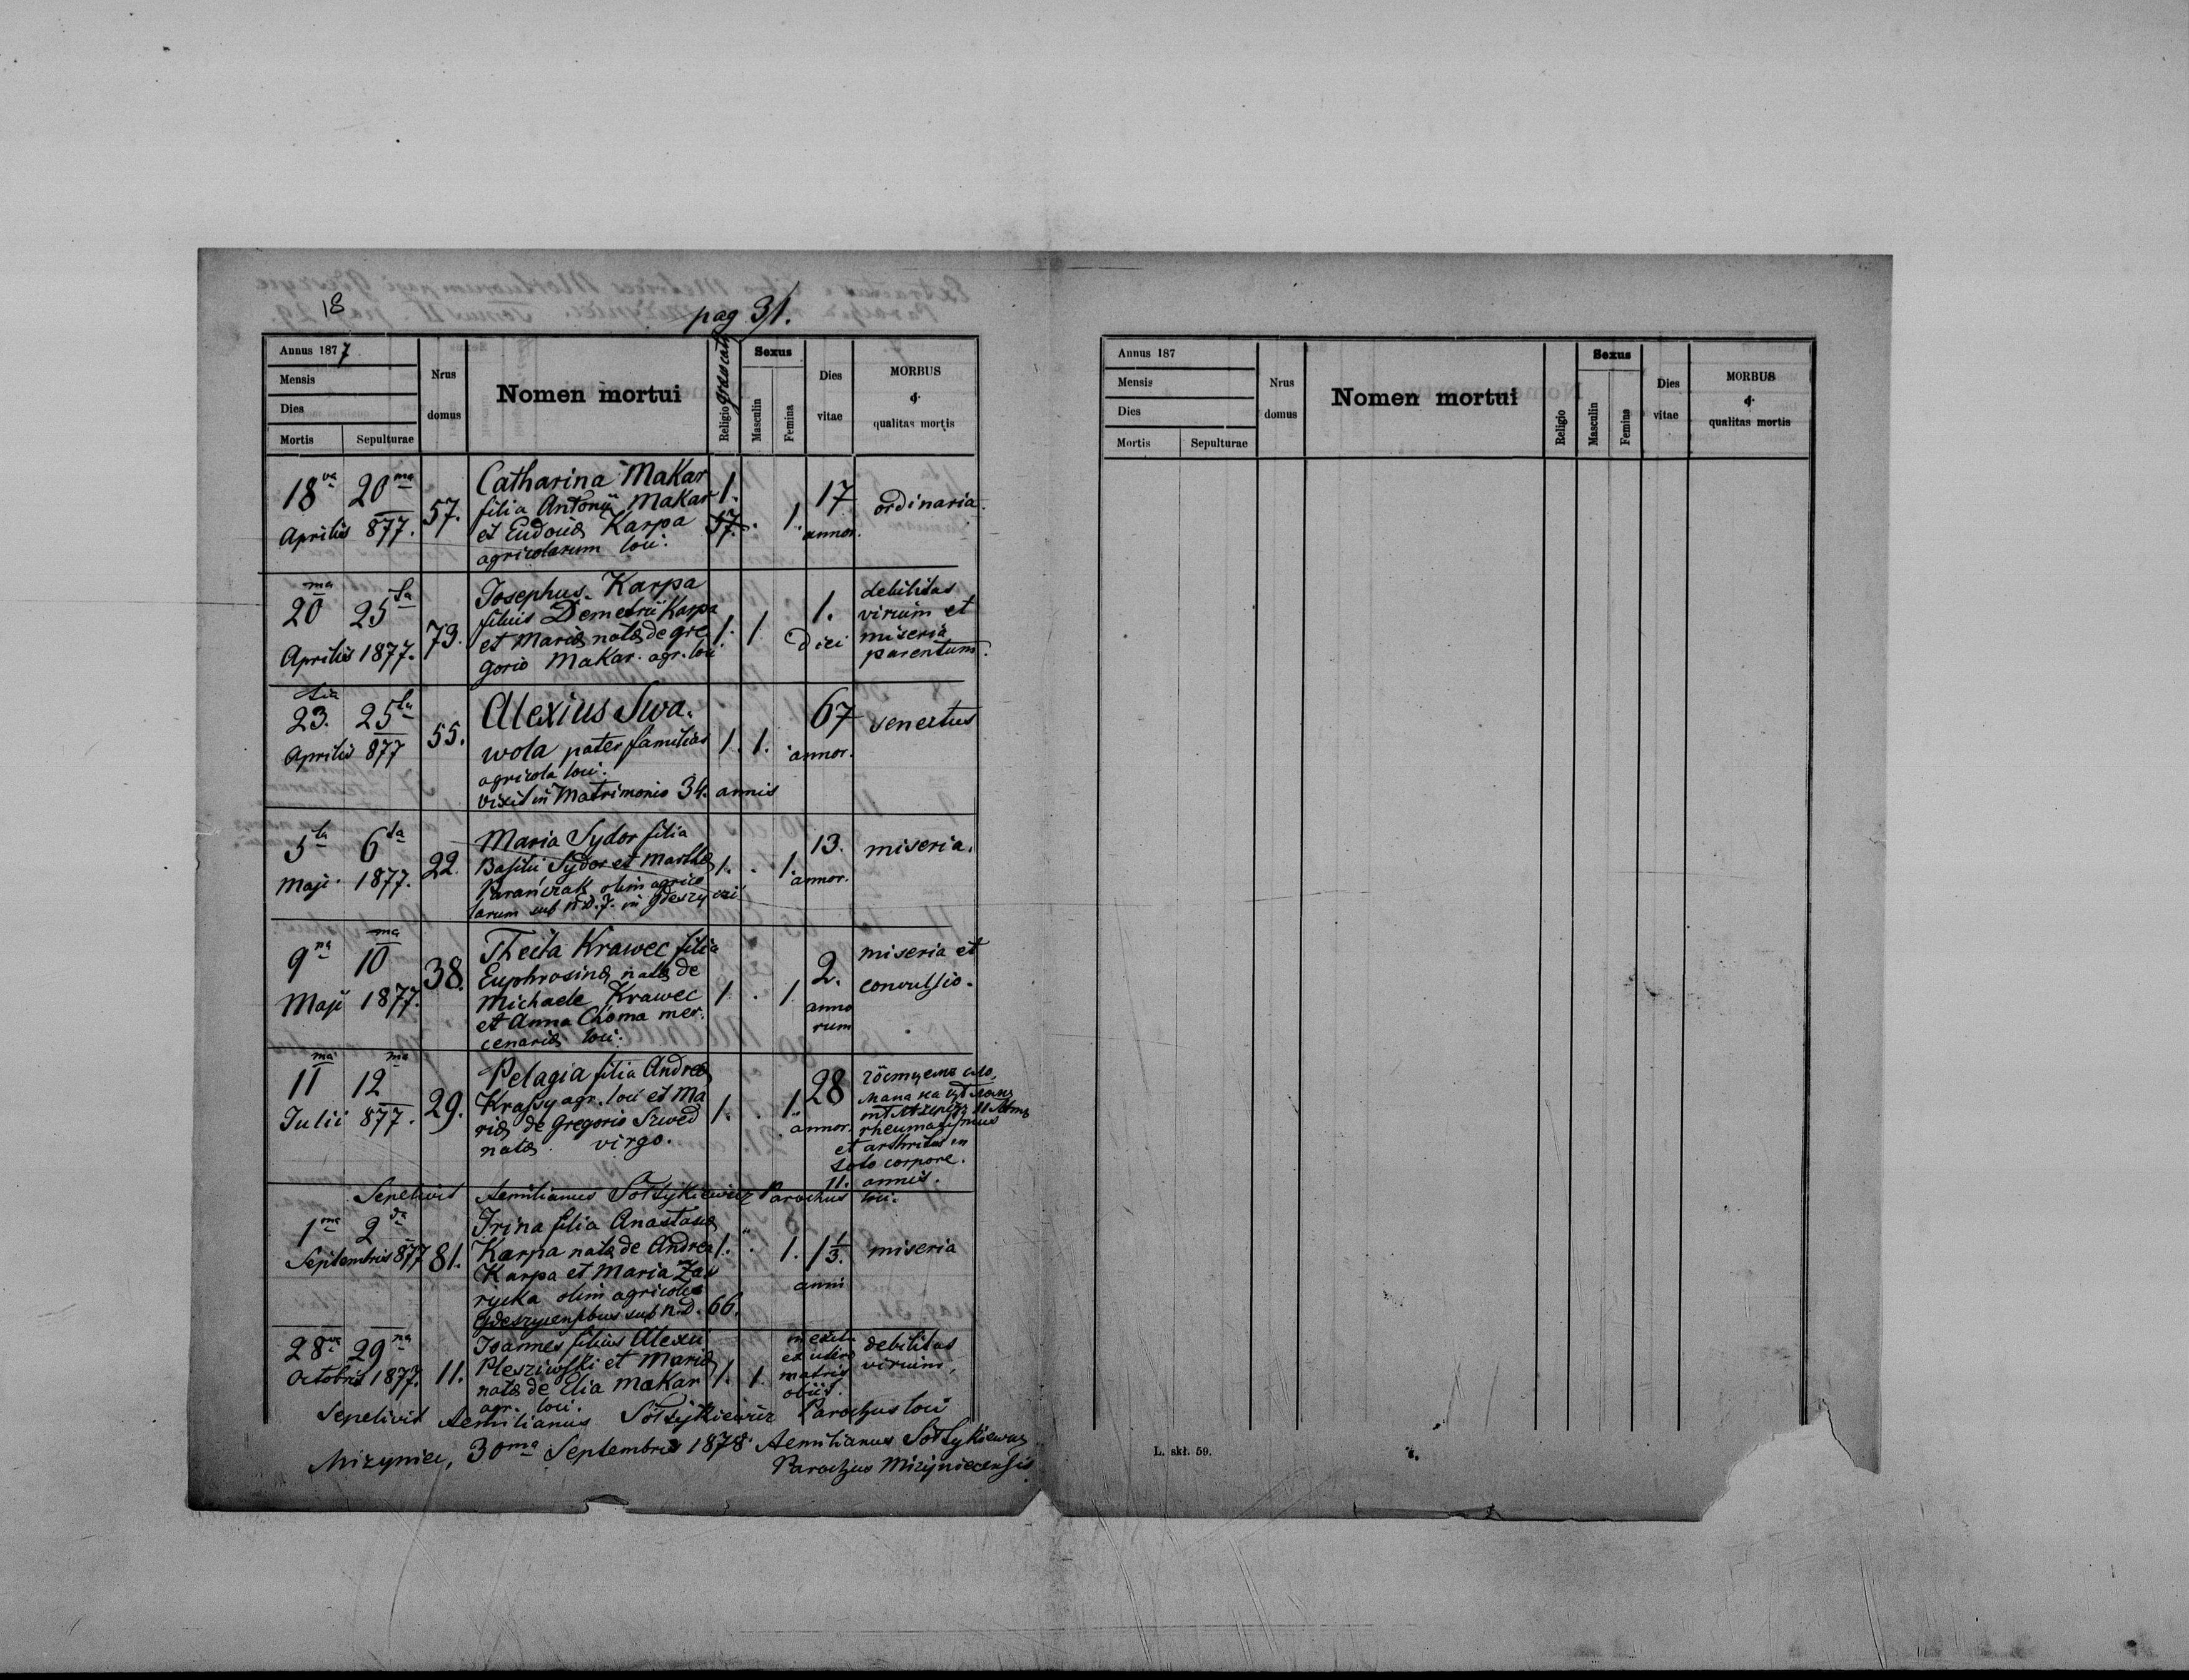 18
pag 31.
Annus 1877
Mensis
Dies
Mortis Sepulturae
Nrus domus
Nomen mortui
Religio graeco cath
Sexus
Masculin
Femina
Dies vitae
MORBUS
&
qualitas mortis
18va 20ma
Aprilis 877.
57.
Catharina Makar
filia Antonii Makar
et Eudoxiæ Karpa
agricolarum loci.
1.
57.
.
1.
17
annor.
ordinaria.
20ma 25ta
Aprilis 1877.
79.
Josephus Karpa
filius Demetrii Karpa
et Mariæ natæ de Gre
gorio Makar. agr. loci
1.
1
1.
diei
debilitas
virium et
miseria
parentum.
23tia 25ta
Aprilis 877
55.
Alexius Swa.
wola pater familias
agricola loci.
vixit in Matrimonio 34. annis
1.
1.
67
annor.
senectus
5ta 6ta
Maji 1877.
22.
Maria Sydor filia
Basilii Sydor et Marthæ
Parańczak olim agrico
larum sub N.D. 7. in Gdeszycezi
1.
.
1.
13.
annor.
miseria.
9na 10ma
Maji 1877.
38.
Thecla Krawec filia
Euphrosinæ natæ de
Michaele Krawec
et Anna Choma mer.
cenariæ loci.
1.
.
1.
2.
anno
rum
miseria et
convulsio.
11ma 12ma
Julii 877.
29.
Pelagia filia Andreæ
Krassy agr. loci et Ma
riæ de Gregorio Szwed
natæ. virgo.
1.
.
1.
28
annor.
rheumatismus
et arthritis in
toto corpore.
11. annis.
Sepelivit Aemilianus Sołtykiewicz Parochus loci.
1ma 2da
Septembris 877
81.
Irina filia Anastasiæ
Karpa natæ de Andrea
Karpa et Maria Za
rycka olim agricolis
Gdeszycensibus sub N.D. 66.
1.
.
1.
1 1/3.
anni
miseria
28va 29na
Octobris 1877.
11.
Joannes filius Alexii
Plesziwski et Mariæ
natæ de Elia Makar
agr. loci.
1.
1.
ex utero
matris
obiit.
debilitas
virium,
Sepelivit Aemilianus Sołtykiewicz Parochus loci
Mizyniec, 30ma Septembris 1878. Aemilianus Sołtykiewicz
Parochus Mizyniecensis
Annus 187
Mensis
Dies
Mortis Sepulturae
Nrus domus
Nomen mortui
Religio
Sexus
Masculin
Femina
Dies vitae
MORBUS
&
qualitas mortis
L. skł. 59.